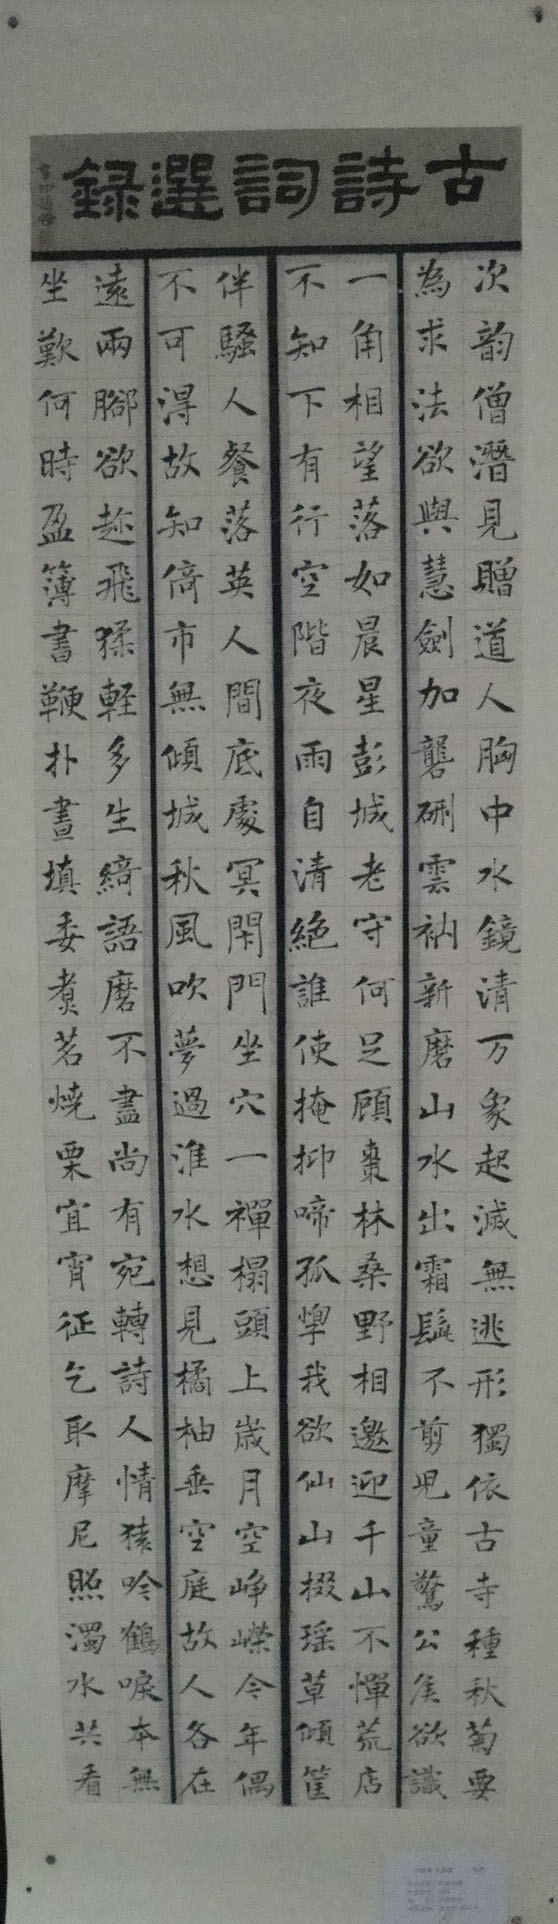 古詩詞選録
次韵僧潛見贈道人胸中水鏡清万象起滅無逃形獨依古寺種秋菊要
伴騷人餐落英人間底處冥閑門坐穴一禪榻頭上歲月空崢嶸今年偶
為求法欲與慧劍加礱硎雲衲新磨山水出霜髭不剪兒童驚公矦欲識
不可得故知倚市無傾城秋風吹夢過淮水想見橘柚垂空庭故人各在
一角相望落如晨星彭城老守何足顧棗林桑野相邀迎千山不憚荒店
遠兩腳欲趁飛猱軽多生綺語磨不盡尚有宛轉詩人情猿吟鶴唳本無
不知下有行空階夜雨自清絶誰使掩抑啼孤惸我欲仙山掇瑶草傾筐
坐歎何時盈簿書鞭扑晝填委煮茗燒栗宜宵征乞取摩尼照濁水共看